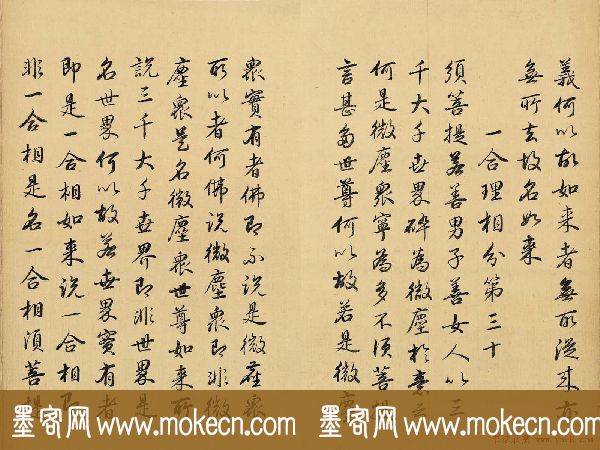 義何以故如来者無所從来亦
無所去故名如来
一合理相分第三十
須菩提若善男子善女人以三
千大千世界碎為微塵於意云
何是微塵眾寧為多不須菩提
言甚多世尊何以故若是微塵
眾實有者佛即不說是微塵眾
所以者何佛說微塵眾即非微
塵眾是名微塵眾世尊如来所
說三千大千世界即非世界是
名世界何以故若世界實有者
即是一合相如来說一合相即
非一合相是名一合相須菩提
墨客网 www.mokecn.com 墨客网 www.mokecn.com